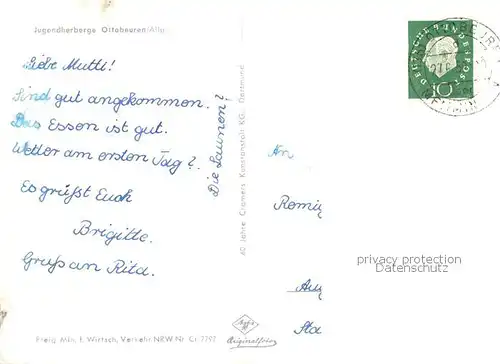 Jugendherberge Ottobeuren/Allg.
Liebe Mutti!
Sind gut angekommen.
Das Essen ist gut.
Wetter am ersten Tag?
Es grüßt Euch
Brigitte.
Gruß an Rita.
Die Launen?
60 Jahre Cramers Kunstanstalt KG. Dortmund
DEUTSCHE BUNDESPOST
10
An
privacy protection
Datenschutz
Freig. Min. f. Wirtsch. Verkehr NRW Nr. Cr 7797
Originalfoto